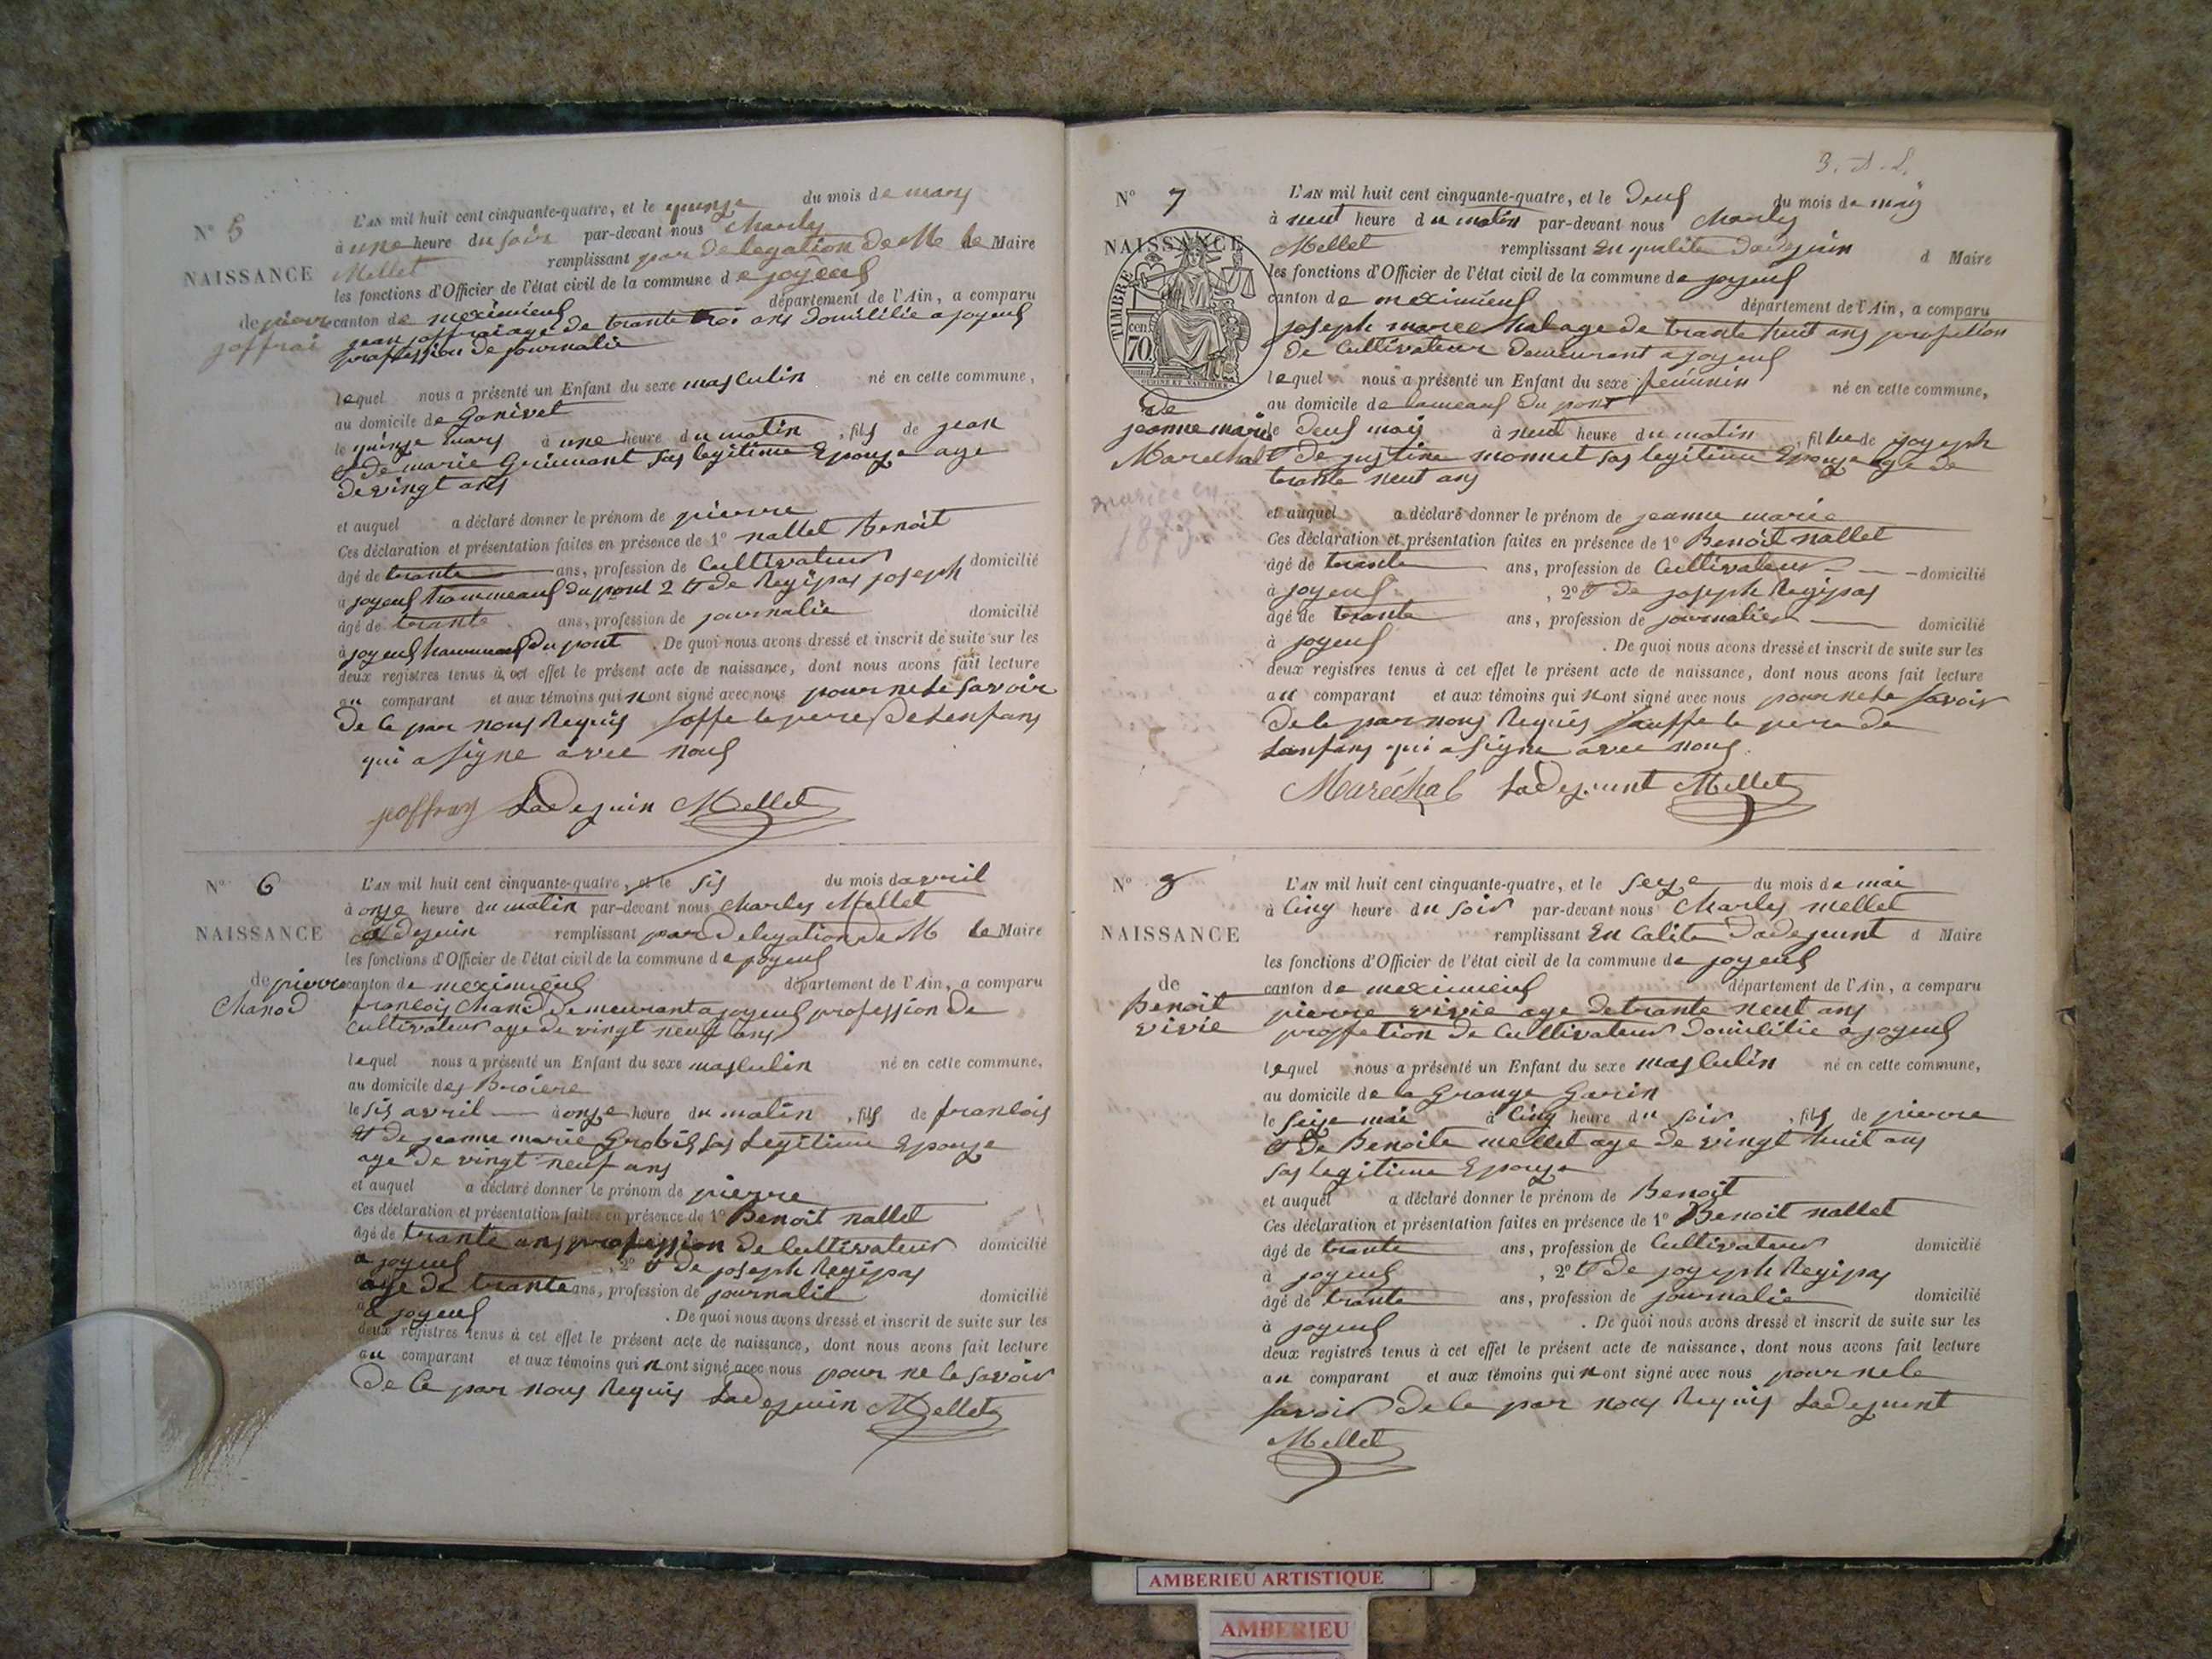 N° 5
L'AN mil huit cent cinquante-quatre, et le quinze du mois de mars
à une heure du soir par-devant nous Charles
Mellet remplissant par delegation de M le Maire
NAISSANCE
les fonctions d'Officier de l'état civil de la commune de joyeux
de pierre joffrai
canton de meximieux département de l'Ain, a comparu
jean joffrai age de trante troi ans domicilié a joyeux
proffession de journalie
lequel nous a présenté un Enfant du sexe masculin né en cette commune,
au domicile de Ganivet
le quinze mars à une heure du matin, fils de jean
et de marie Guimant sas legitime Epouze age
de vingt ans
et auquel a déclaré donner le prénom de pierre
Ces déclaration et présentation faites en présence de 1° nallet Benoit
âgé de trante ans, profession de Cultivateur domicilié
à joyeux hammeaux du pont 2 et de Regipas joseph
âgé de trante ans, profession de journalie domicilié
à joyeux hammeaux du pont. De quoi nous avons dressé et inscrit de suite sur les
deux registres tenus à cet effet le présent acte de naissance, dont nous avons fait lecture
au comparant et aux témoins qui nont signé avec nous pour ne le savoir
de ce par nous Requis soffe le pere de lenfans
qui a signe avec nous
joffray Ladejuin Mellet
N° 6
L'AN mil huit cent cinquante-quatre, et le sis du mois davril
à onze heure du matin par-devant nous Charles Mellet
NAISSANCE
adejuin remplissant par delegation de M le Maire
les fonctions d'Officier de l'état civil de la commune de joyeux
de pierre Chanod
canton de meximieux département de l'Ain, a comparu
francois Chanod demeurant a joyeux profession de
cultivateur age de vingt neuf ans
lequel nous a présenté un Enfant du sexe masculin né en cette commune,
au domicile des Broiere
le sis avril à onze heure du matin, fils de francois
et de jeanne marie Grobis sas Legitime Epouze
age de vingt neuf ans
et auquel a déclaré donner le prénom de pierre
Ces déclaration et présentation faites en présence de 1° Benoit nallet
âgé de trante ans profession de Cultivateur domicilié
a joyeux, 2° et de joseph Regipas
age de trante ans, profession de journalie domicilié
à joyeux. De quoi nous avons dressé et inscrit de suite sur les
deux registres tenus à cet effet le présent acte de naissance, dont nous avons fait lecture
au comparant et aux témoins qui nont signé avec nous pour ne le savoir
de ce par nous Requis Ladejuin Mellet
N° 7
L'AN mil huit cent cinquante-quatre, et le deux du mois de may
à neuf heure du matin par-devant nous Charles
NAISSANCE
Mellet remplissant En qualite dadejuin d Maire
TIMBRE
cent
70
les fonctions d'Officier de l'état civil de la commune de joyeux
canton de meximieux département de l'Ain, a comparu
joseph marechal age de trante huit ans profession
de Cultivateur demeurant a joyeux
lequel nous a présenté un Enfant du sexe feminin né en cette commune,
au domicile de lameaux du pont
de jeanne marie Marechal
mariée en
le deux may à neuf heure du matin, fille de joyeph
et de justine monnet sas legitime Epouze age de
trante neuf ans
et auquel a déclaré donner le prénom de jeanne marie
Ces déclaration et présentation faites en présence de 1° Benoit nallet
âgé de trante ans, profession de Cultivateur domicilié
à joyeux, 2° et de joseph Regipas
âgé de trante ans, profession de journalier domicilié
à joyeux. De quoi nous avons dressé et inscrit de suite sur les
deux registres tenus à cet effet le présent acte de naissance, dont nous avons fait lecture
au comparant et aux témoins qui nont signé avec nous pour ne le savoir
de ce par nous Requis sauffe le pere de
lenfans qui a signe avec nous
Maréchal Ladejunt Mellet
N° 8
L'AN mil huit cent cinquante-quatre, et le seze du mois de mai
à Cinq heure du soir par-devant nous Charles mellet
NAISSANCE
remplissant En Calite dadejunt d Maire
les fonctions d'Officier de l'état civil de la commune de joyeux
de Benoit vivie
canton de meximieux département de l'Ain, a comparu
pierre vivie age de trante neuf ans
proffetion de Cultivateur domicilie a joyeux
lequel nous a présenté un Enfant du sexe masculin né en cette commune,
au domicile de la Grange Garin
le seize mai à Cinq heure du soir, fils de pierre
et de Benoite mellet age de vingt huit ans
sas legitime Epouze
et auquel a déclaré donner le prénom de Benoit
Ces déclaration et présentation faites en présence de 1° Benoit nallet
âgé de trante ans, profession de Cultivateur domicilié
à joyeux, 2° et de joyeph Regipas
âgé de trante ans, profession de journalie domicilié
à joyeux. De quoi nous avons dressé et inscrit de suite sur les
deux registres tenus à cet effet le présent acte de naissance, dont nous avons fait lecture
au comparant et aux témoins qui nont signé avec nous pour ne le
savoir de ce par nous Requis Ladejunt
Mellet
AMBERIEU ARTISTIQUE
AMBERIEU